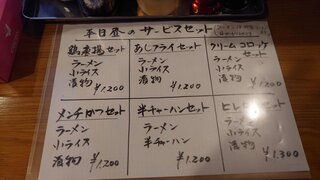 本日昼のサービスセット
鶏唐揚セット
ラーメン
小ライス
漬物
¥1,200
あじフライセット
ラーメン
小ライス
漬物
¥1,200
クリームコロッケセット
ラーメン
小ライス
漬物
¥1,200
メンチかつセット
ラーメン
小ライス
漬物
¥1,200
半チャーハンセット
ラーメン
半チャーハン
¥1,200
ヒレ
セット
ラーメン
小ライス
漬物
¥1,300